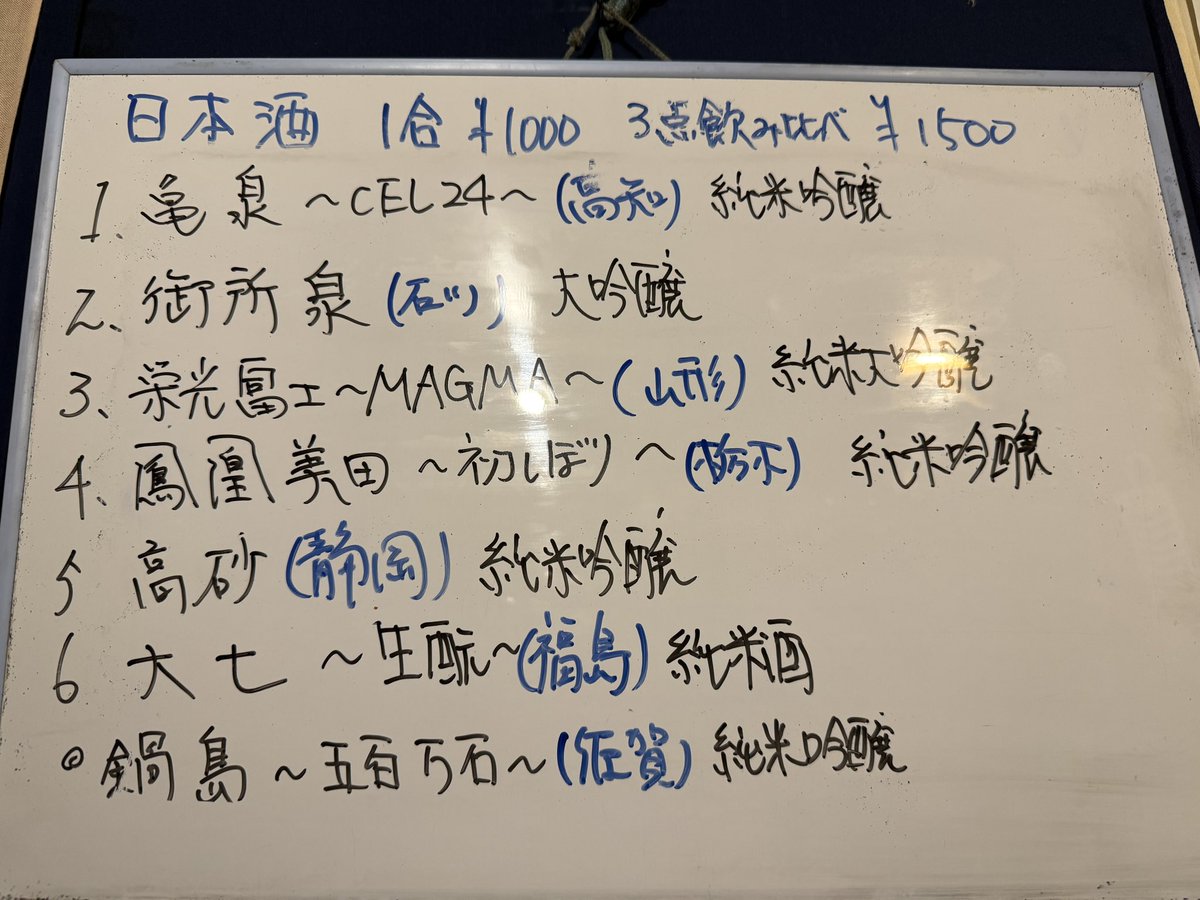 日本酒 1合 ¥1000 3点飲み比べ ¥1500
1、亀泉 ~CEL24~ (高知) 純米吟醸
2、御所泉 (石川) 大吟醸
3、栄光冨士~MAGMA~ (山形) 純米大吟醸
4、鳳凰美田 ~初しぼり~ (栃木) 純米吟醸
5 高砂 (静岡) 純米吟醸
6 大七 ~生酛~ (福島) 純米酒
◎鍋島 ~五百万石~ (佐賀) 純米吟醸